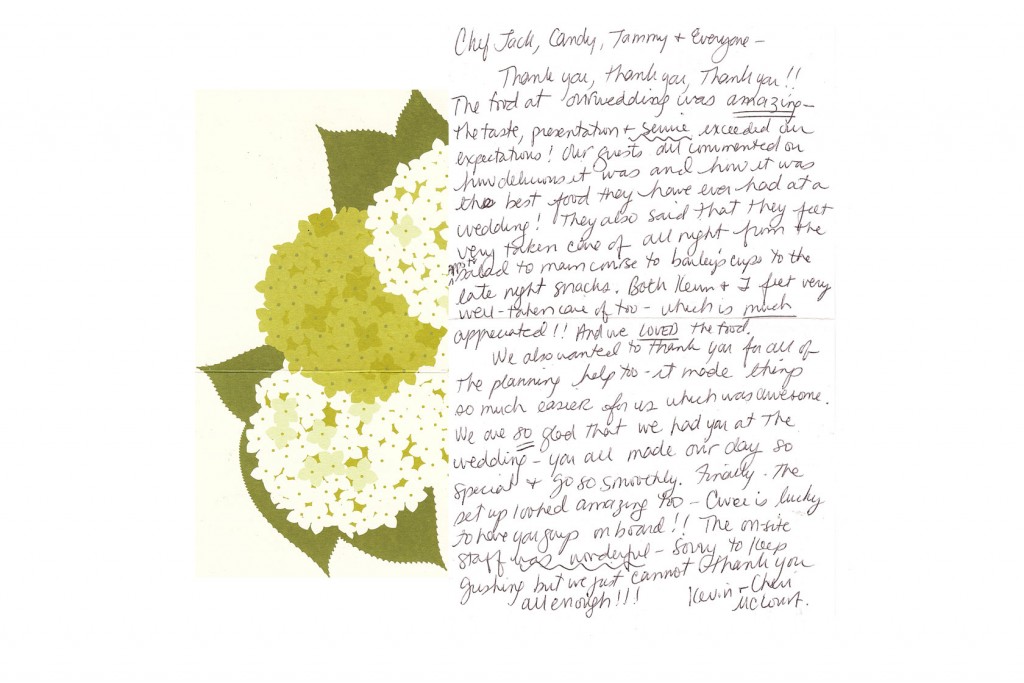 Chef Jack, Candy, Tammy + Everyone -
Thank you, thank you, Thank you!!
The food at our wedding was amazing-
the taste, presentation + service exceeded our
expectations! Our guests all commented on
how delicious it was and how it was
the best food they have ever had at a
wedding! They also said that they felt
very taken care of all night from the
apps to salad to main course to barley's cups to the
late night snacks. Both Kevin + I feel very
well-taken care of too - which is much
appreciated!! And we LOVED the food.
We also wanted to thank you for all of
the planning help too - it made things
so much easier for us which was awesome.
We are so glad that we had you at the
wedding - you all made our day so
special + go so smoothly. Finally - the
set up looked amazing too - is lucky
to have you guys on board!! The on-site
staff was wonderful - Sorry to keep
gushing but we just cannot thank you
all enough!!!
Kevin + Cheri
McCourt.